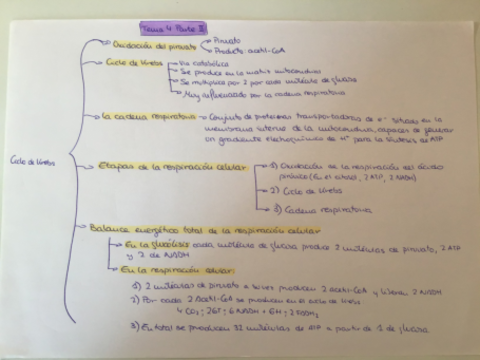 Tema 4 Parte II
Oxidación del piruvato
Piruvato
Producto acetil-CoA
Ciclo de Krebs
Vía catabólica
Se produce en la matriz mitocondrial
Se multiplica por 2 por cada molécula de glucosa
Muy influenciado por la cadena respiratoria
La cadena respiratoria
Conjunto de proteínas transportadoras de e- situadas en la
membrana interna de la mitocondria, capaces de generar
un gradiente electroquímico de H+ para la síntesis de ATP
Ciclo de Krebs
Etapas de la respiración celular
1) Oxidación en la respiración del ácido
pirúvico (En el citosol, 2 ATP, 2 NADH)
2) Ciclo de Krebs
3) Cadena respiratoria
Balance energético total de la respiración celular
En la glucólisis cada molécula de glucosa produce 2 moléculas de piruvato, 2 ATP
y 2 de NADH
En la respiración celular:
1) 2 moléculas de piruvato producen 2 acetil-CoA y liberan 2 NADH
2) Por cada 2 Acetil-CoA se producen en el ciclo de Krebs
4 CO2; 2GTP; 6 NADH + 6H; 2 FADH2
3) En total se producen 32 moléculas de ATP a partir de 1 de glucosa